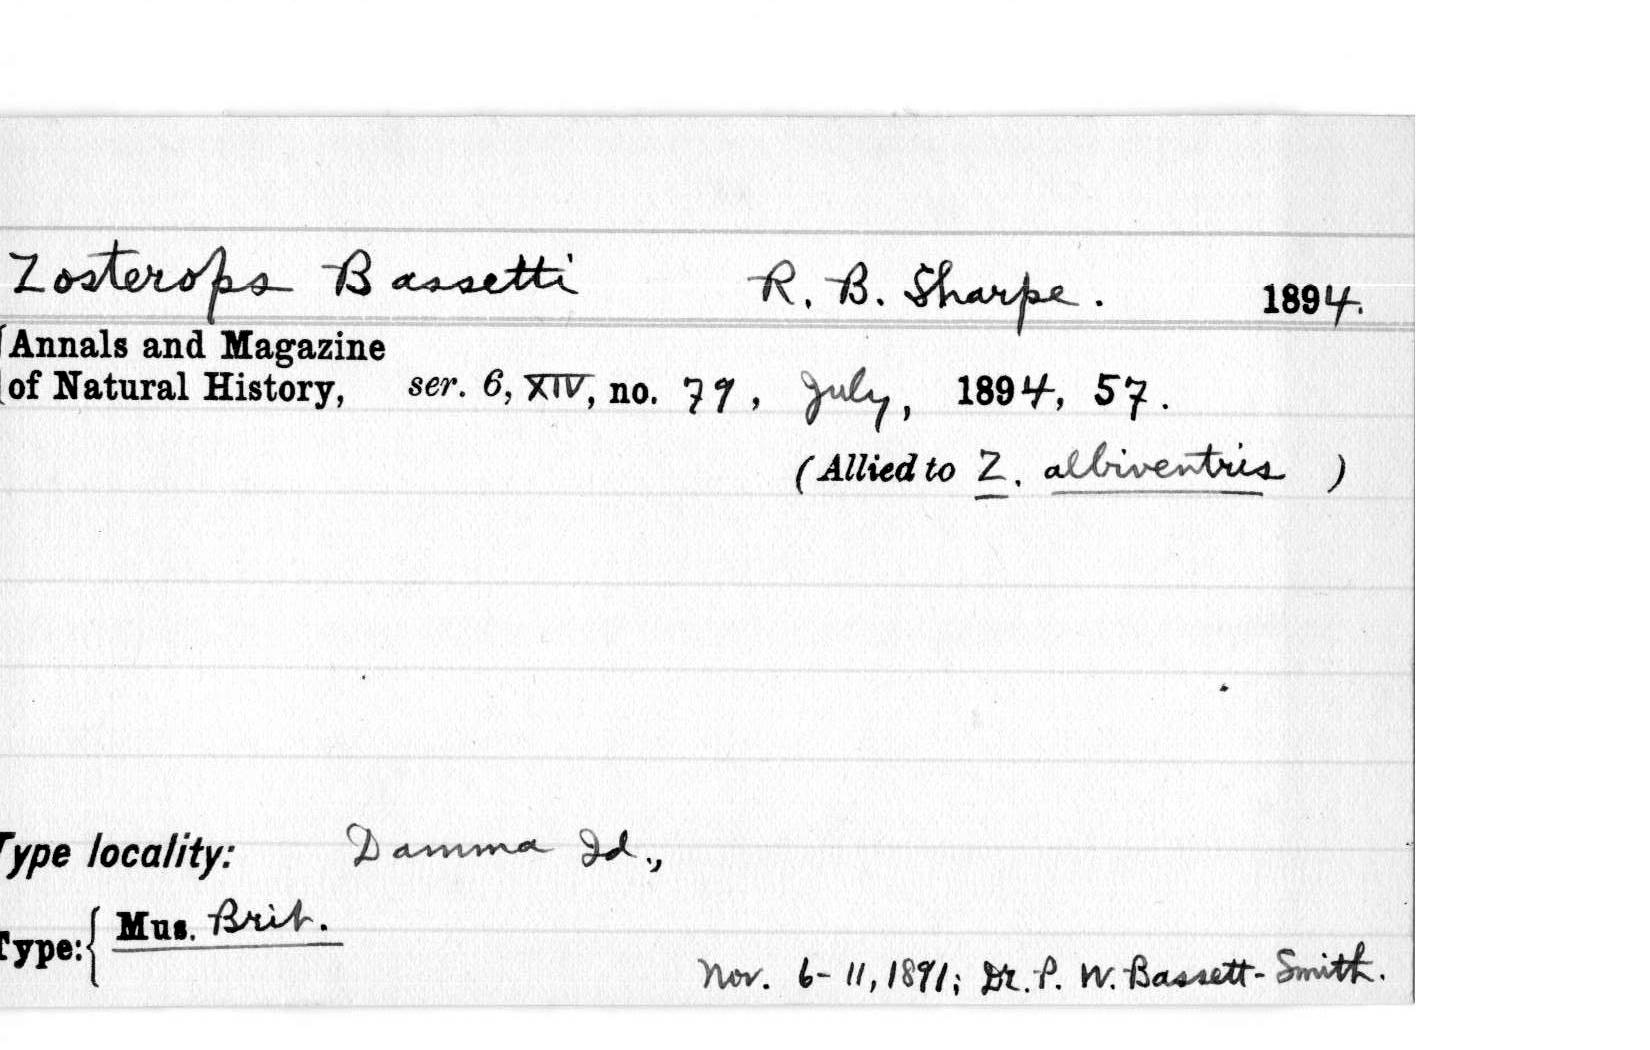 Zosterops Bassetti R. B. Sharpe. 1894.
Annals and Magazine
of Natural History, ser. 6, XIV, no. 79, July, 1894, 57.
(Allied to Z. albiventris)
Type locality: Damma Id.,
Type: { Mus. Brit.
Nov. 6-11, 1891; Dr. P. W. Bassett-Smith.